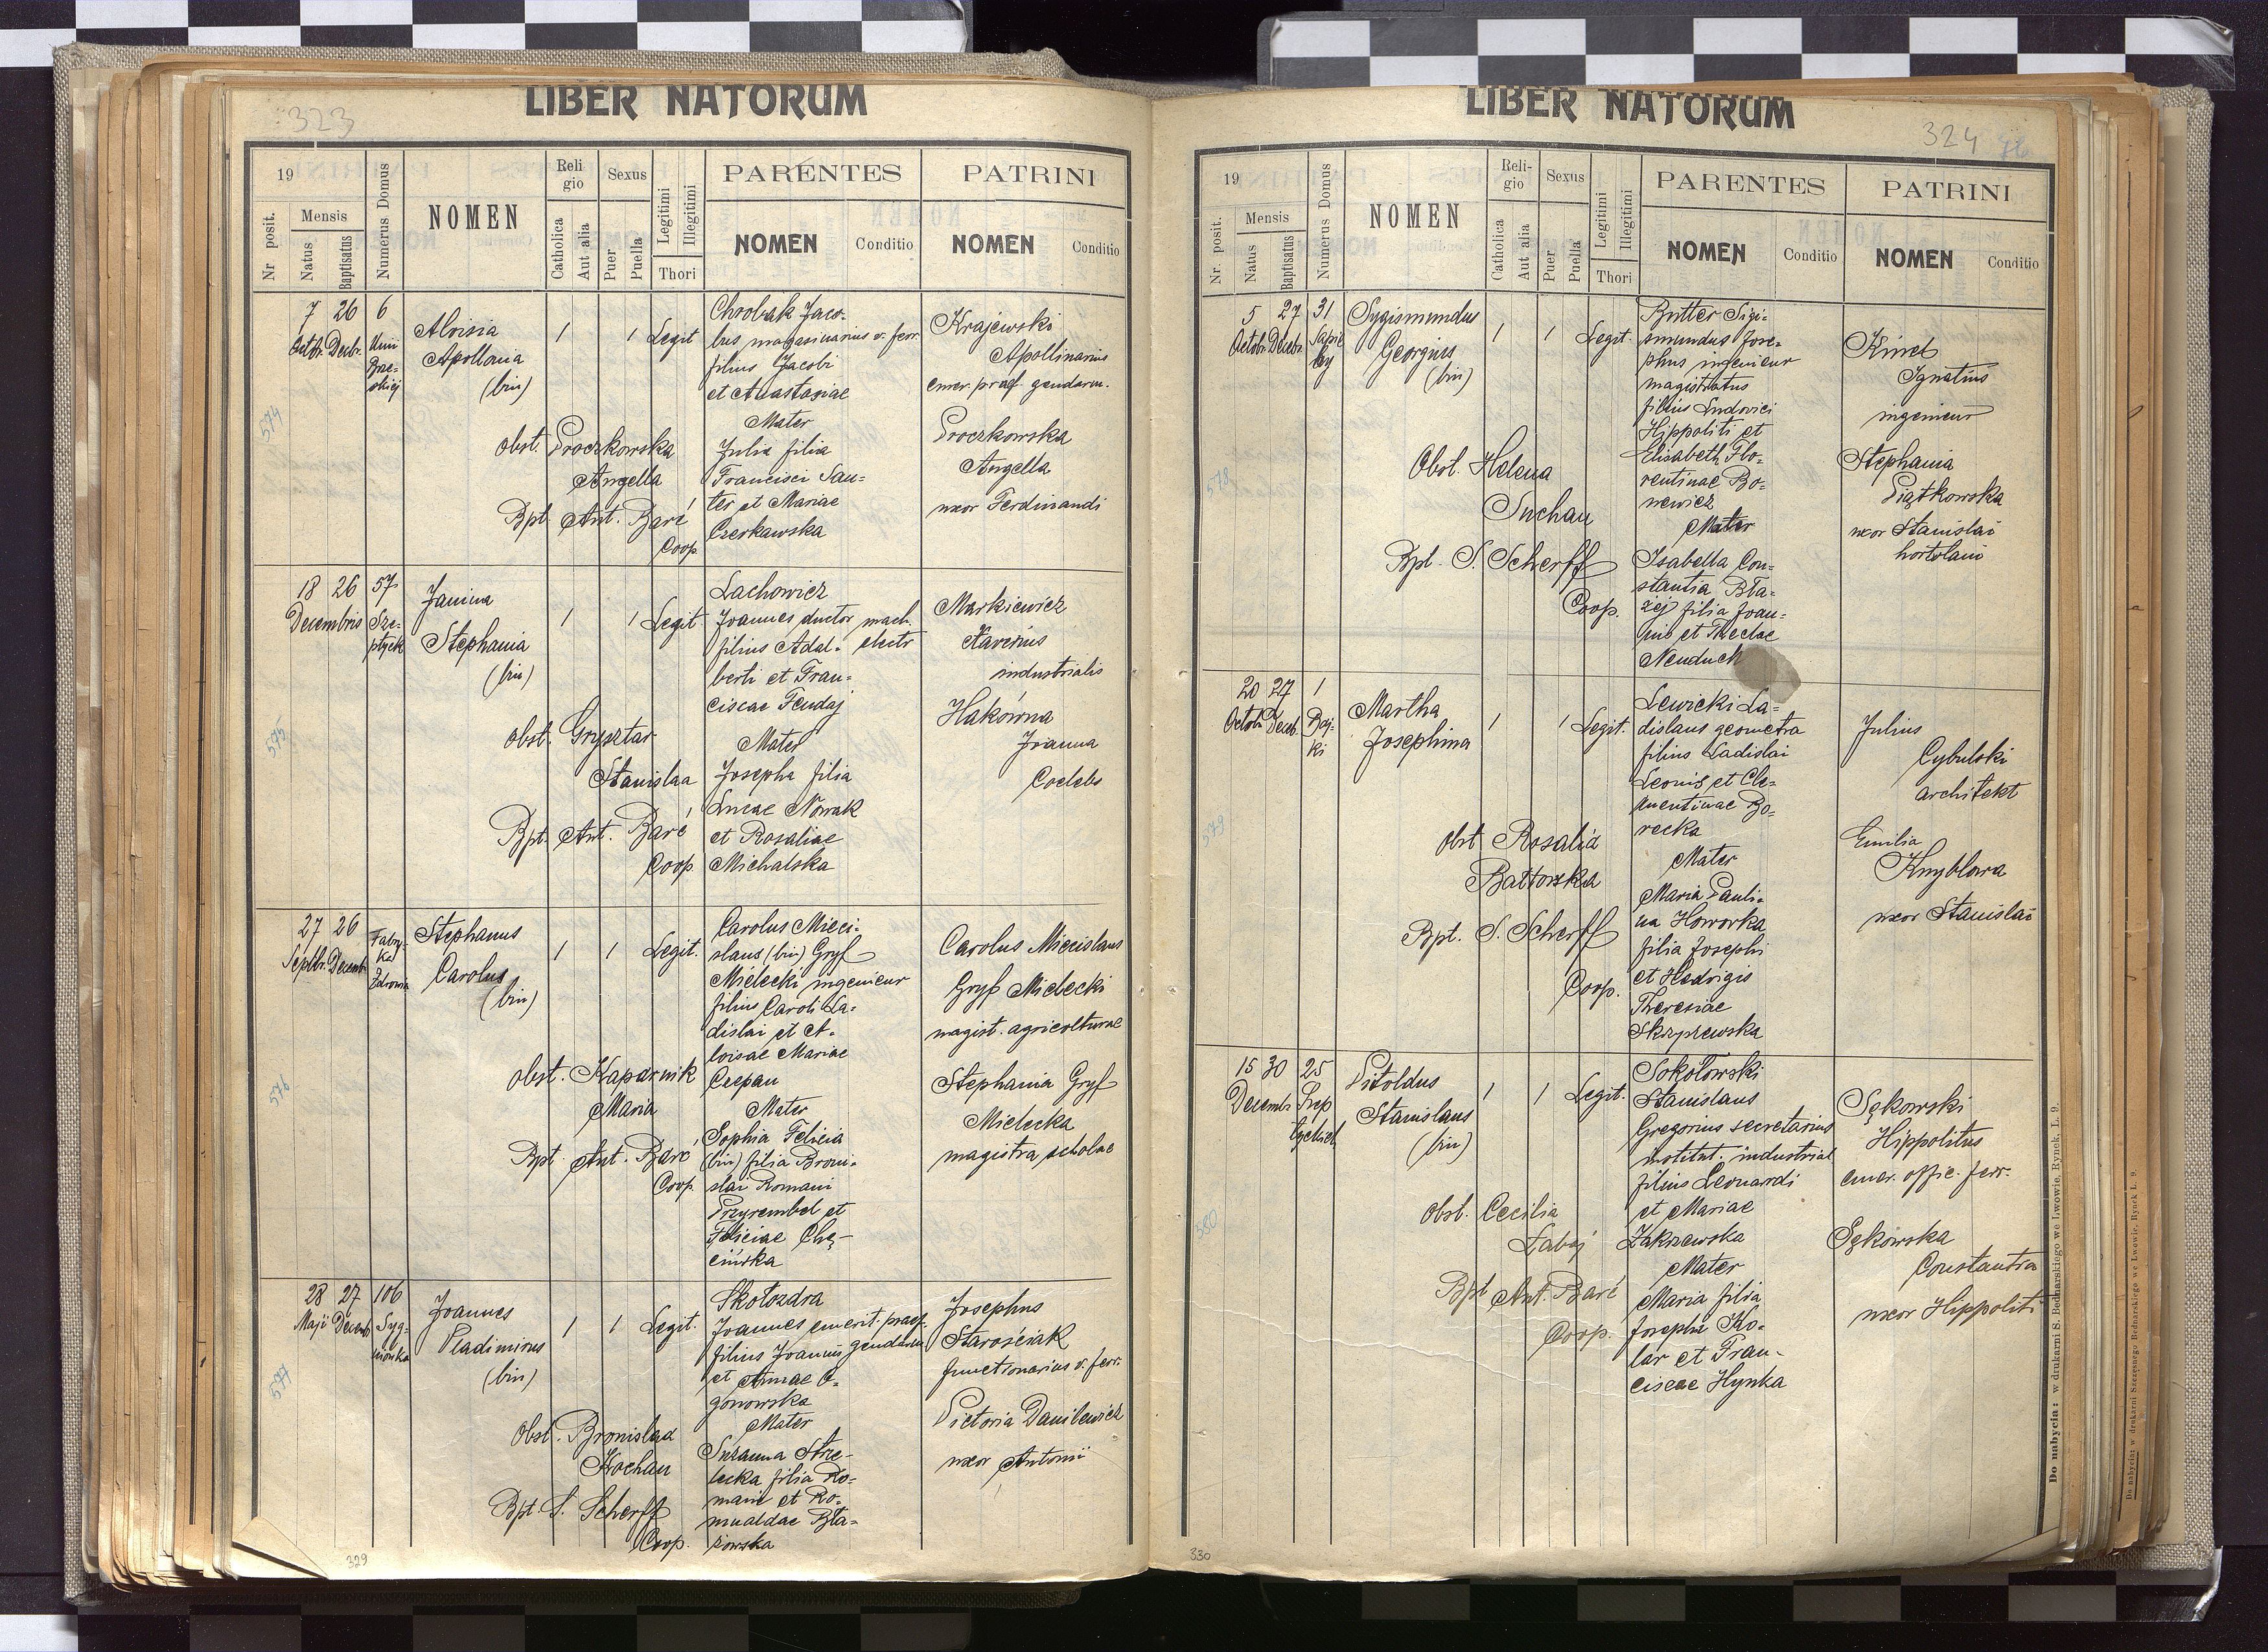 323
LIBER NATORUM
19
Nr posit.
Mensis
Natus
Baptisatus
Numerus Domus
NOMEN
Reli
gio
Catholica
Aut alia
Sexus
Puer
Puella
Legitimi
Illegitimi
Thori
PARENTES
NOMEN
Conditio
PATRINI
NOMEN
Conditio
574
7 26 6
Octbr. Decbr. Unii
Brze-
skiej
Aloisia
Apollonia
(bin)
1 1 Legit
obst. Proczkowska
Angella
Bpt. Ant. Baré
Coop.
Chrobak Jaco-
bus magasinarius v. ferr.
filius Jacobi
et Anastasiae
Mater
Julia filia
Francisci Sau-
ter et Mariae
Czerkawska
Krajewski
Apollinarius
emer. praef. gendarm.
Proczkowska
Angella
uxor Ferdinandi
575
18 26 57
Decembris Sze-
ptyck
Janina
Stephania
(bin)
1 1 Legit.
obst. Grysztar
Stanislaa
Bpt. Ant. Baré
Coop.
Lachowicz
Joannes ductor mach.
filius Adal- electr
berti et Fran-
ciscae Fendaj
Mater
Josepha filia
Lucae Nowak
et Rosaliae
Michalska
Markiewicz
Xaverius
industrialis
Hakówna
Joanna
Coelebs
576
27 26 Fabry-
Septbr. Decemb. ka
Zdrowia
Stephanus
Carolus
(bin)
1 1 Legit.
obst. Kaparnik
Maria
Bpt. Ant. Baré
Coop.
Carolus Mieci-
slaus (bin) Gryf
Mielecki ingenieur
filius Caroli La-
dislai et A-
loisae Mariae
Czepan
Mater
Sophia Felicia
(bin) filia Broni-
slai Romani
Przyrembel et
Feliciae Chę-
cińska
Carolus Miecislaus
Gryf Mielecki
magist. agricolturae
Stephania Gryf
Mielecka
magistra scholae
577
28 27 106
Maji Decemb. Syg-
niówka
Joannes
Vladimirus
(bin)
1 1 Legit.
Obst. Bronislaa
Kochan
Bpt. S. Scherff
Coop.
Skołozdra
Joannes emerit. praef.
filius Joannis gendarm.
et Annae O-
gonowska
Mater
Suzanna Strze-
lecka filia Ro-
mani et Ro-
mualdae Bła-
żowska
Josephus
Starościak
functionarius v. ferr.
Victoria Danilewicz
uxor Antonii
329
LIBER NATORUM
324 76
19
Nr. posit.
Mensis
Natus
Baptisatus
Numerus Domus
NOMEN
Reli-
gio
Catholica
Aut alia
Sexus
Puer
Puella
Legitimi
Illegitimi
Thori
PARENTES
NOMEN
Conditio
PATRINI
NOMEN
Conditio
578
5 27 31
Octobr. Decebr. Sapie
hy
Sygismundus
Georgius
(bin)
1 1 Legit.
Obst. Helena
Suchan
Bpt. S. Scherff
Coop.
Butter Sigi-
smundus Jose-
phus ingenieur
magistratus
filius Ludovici
Hippoliti et
Elisabeth Flo-
rentinae Bo-
newicz
Mater
Isabella Con-
stantia Bła-
żej filia Joan-
nis et Theclae
Neuduch
Kinel
Ignatius
ingenieur
Stephania
Piątkowska
uxor Stanislai
hortolani
579
20 27 1
Octobr. Deceb. Baj-
ki
Martha
Josephina
1 1 Legit.
Obst. Rosalia
Battowska
Bpt. S. Scherff
Coop.
Lewicki La-
dislaus geometra
filius Ladislai
Leonis et Cle-
mentinae Bo-
recka
Mater
Maria Pauli-
na Howorka
filia Josephi
et Hedvigis
Theresiae
Skrzprzewska
Julius
Cybulski
architekt
Emilia
Knyblowa
uxor Stanislai
580
15 30 25
Decembr. Szep
tyckich
Vitoldus
Stanislaus
(bin)
1 1 Legit.
Obst. Cecilia
Łabaj
Bpt Ant. Baré
Coop.
Sokołowski
Stanislaus
Gregorius secretarius
institut. industrial.
filius Leonardi
et Mariae
Zakrzewska
Mater
Maria filia
Josephi Ko-
lar et Fran-
ciscae Hynka
Sękowski
Hippolitus
emer. offic. ferr.
Sękowska
Constantia
uxor Hippoliti
330
Do nabycia: w drukarni S. Bednarskiego we Lwowie, Rynek, L. 9.
Do nabycia: w drukarni Szczęsnego Bednarskiego we Lwowie, Rynek L. 9.